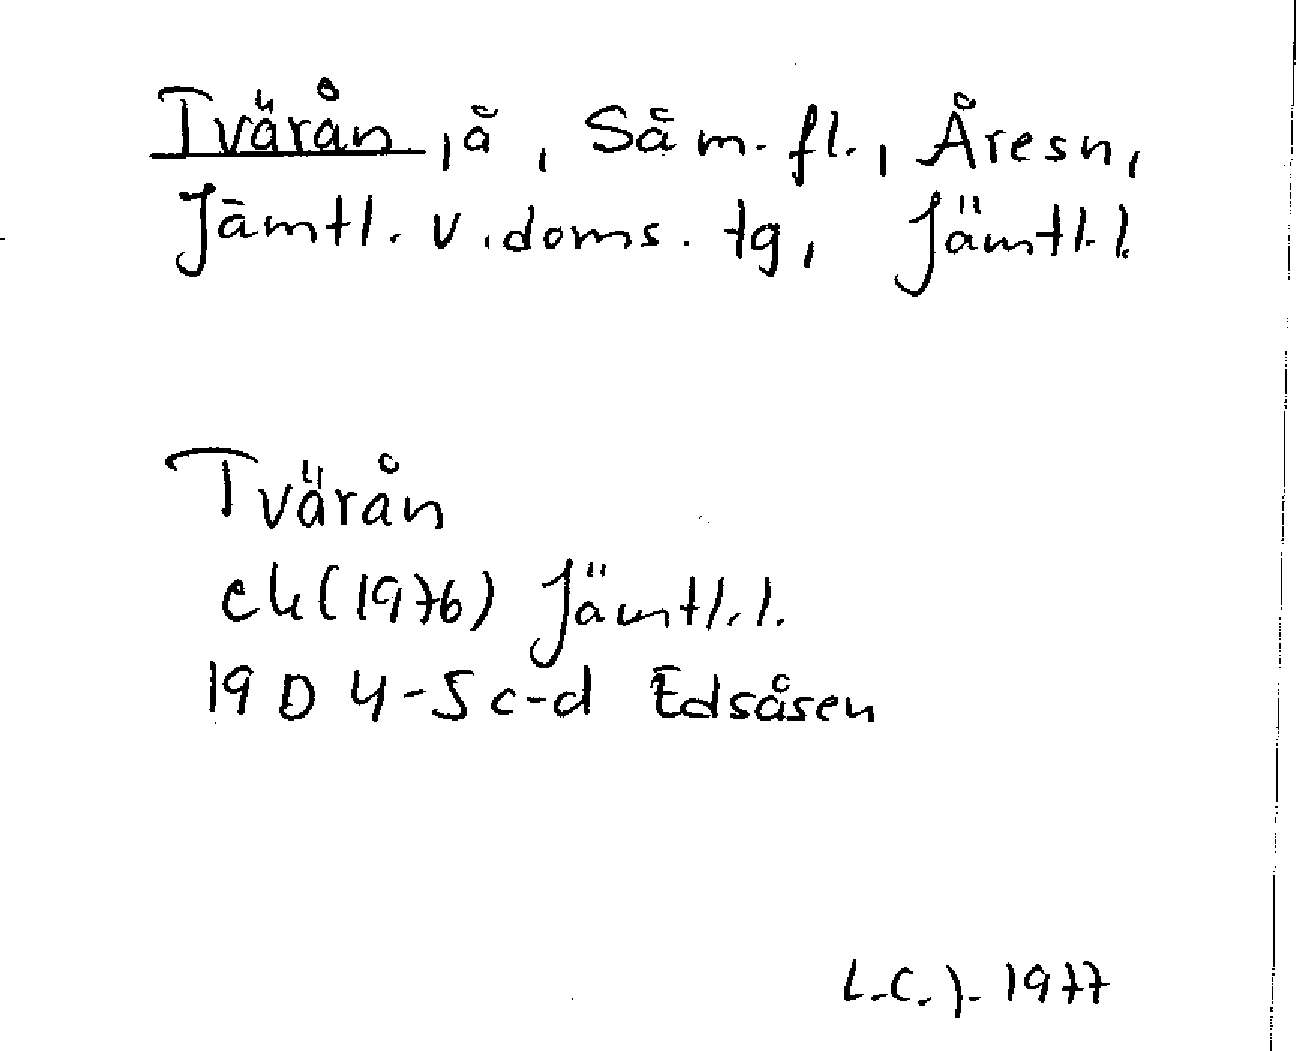 Tvärån, å, Såm. fl., Åresn,
Jämtl. v. doms. tg, Jämtl. l.
Tvärån
ek (1976) Jämtl. l.
19 D 4-5 c-d Edsåsen
L.C.J. 1977